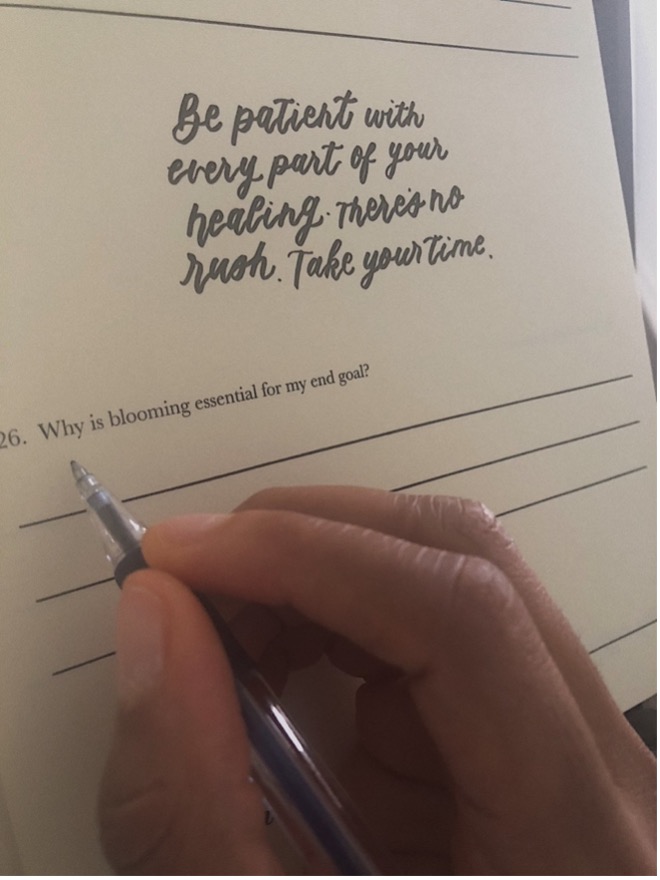 Be patient with
every part of your
healing. There's no
rush. Take your time.
26. Why is blooming essential for my end goal?